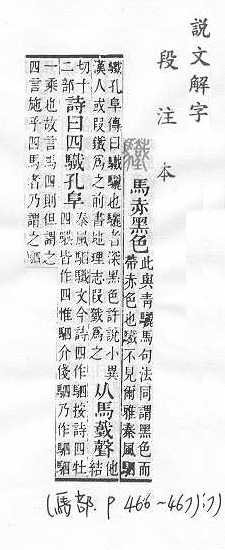 說文解字
段注本
驖
馬赤黑色
此與青驪馬句法同謂黑色而
帶赤色也驖不見爾雅秦風駟
驖孔阜傳曰驖驪也驪者深黑色許說小異
漢人或叚鐵為之前書地理志叚驖為之
从馬𢧜聲
他
結
切十
二部
詩曰四驖孔阜
秦風駟驖文今詩四作駟按詩四牡
四騏皆作四惟駟介俴駟乃作駟
一乘也故言馬四則但謂之
四言施乎四馬者乃謂之駟
(馬部. P 466~467)